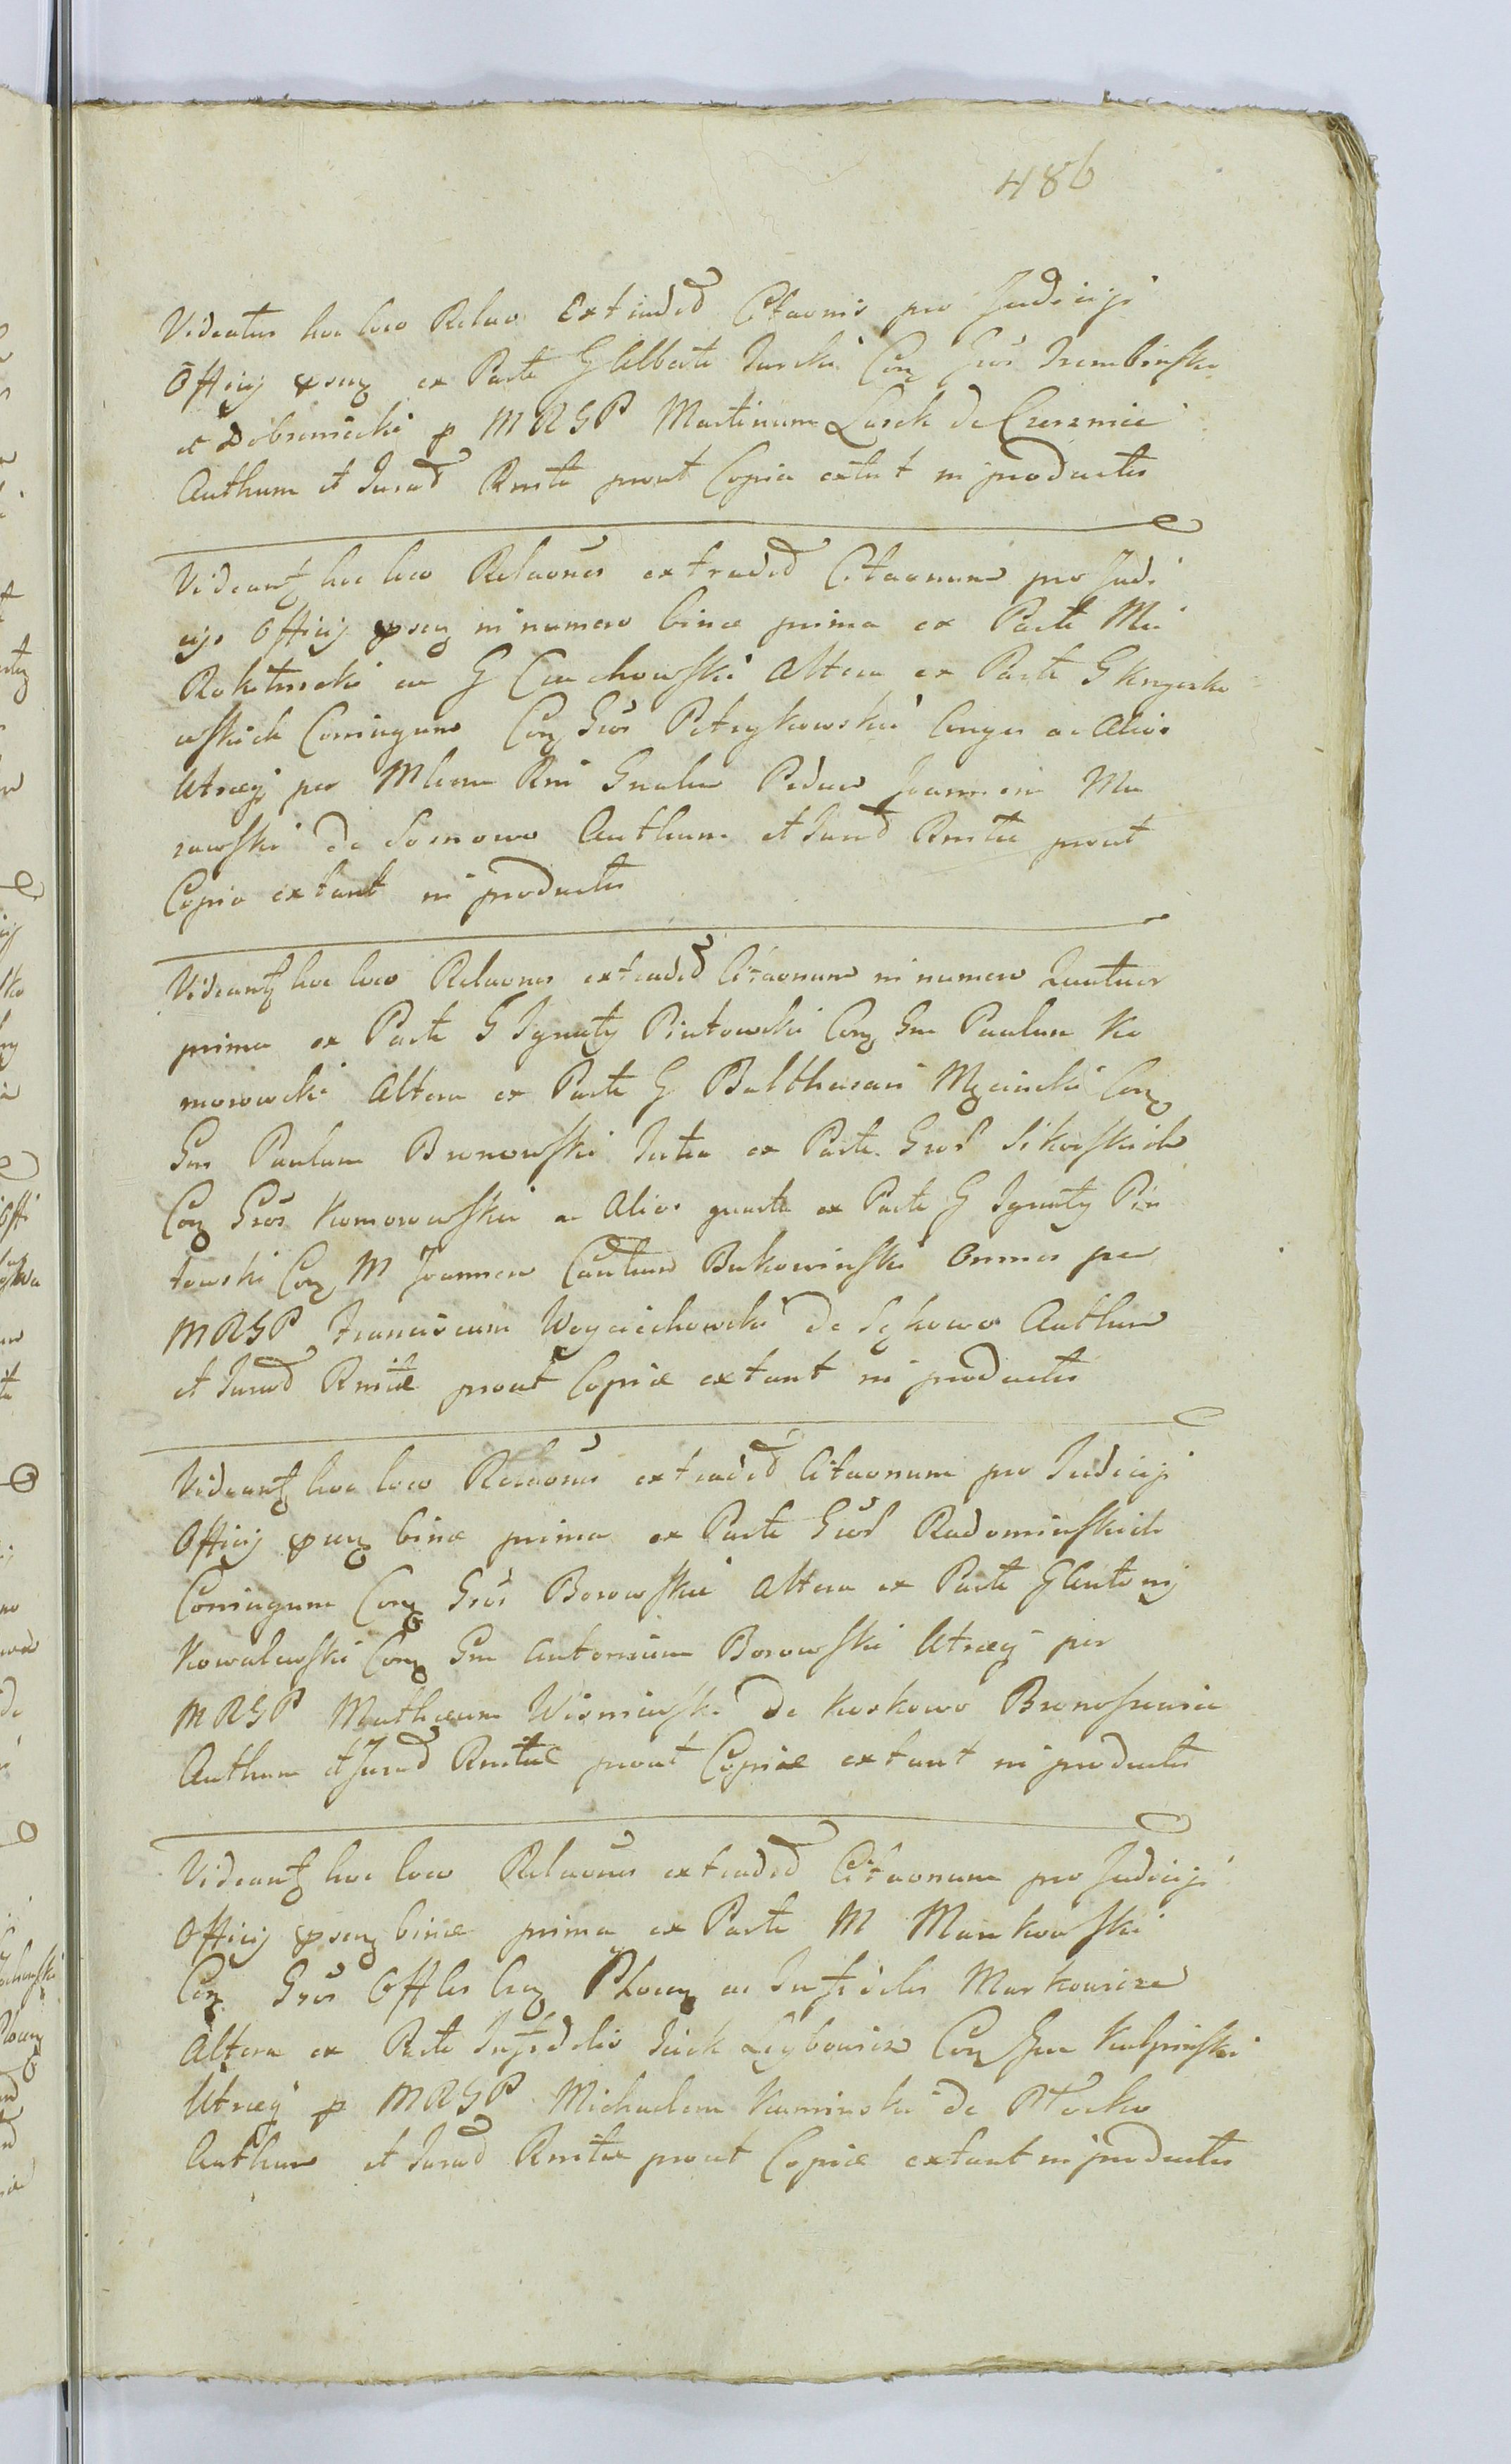 486
Videatur hoc loco Relao Extraded Citaonis pro Judicijs
Officij ex Parte G Alberti Turski Con Gros Trembinski
et Dobrzeniecki p MRGP Martinum Lasek de Czerznice
Authum et Jurad Rnita prout Copia extat in productis
Videant hoc loco Relaones extraded Citaonum pro Judi
cijs Officij in numero binæ prima ex Parte Mci
Rokitnicki ac G Ciechowski Altera ex Parte G
wskich Coniugum Con Gros Petrykowskie Conges ac Alios
Utræq per Mlrem Rni Gnalem Peduc Joannem Mu
rawski de Sosnowo Authum et Jurad Rnitæ prout
Copia extant in productis
Videant hoc loco Relaones extraded Citaonum in numero Quatuor
prima ex Parte G Ignaty Piotowski Con Gm Paulum Ko
morowski Altera ex Parte G Balthasari Mycinski Con
Gm Paulum Bronowski Tertia ex Parte Grod Sikorskich
Con Gros Komorowskie ac Alios quarta ex Parte G Ignaty Pio
towski Con M Joannem Cantium Bukowinski Omnes per
MRGP Franciscum Woyciechowski de Sękowo Authum
et Jurad Rnitæ prout Copiæ extant in productis
Videant hoc loco Relaones extraded Citaonum pro Judicijs
Officij binæ prima ex Parte Grod Radominskich
Coniugum Con Gros Borowskie Altera ex Parte G Antonij
Kowalewski Con Gm Antonium Borowski Utræq per
MRGP Mathæum Wisniewski de Koskowo
Authum et Jurad Rnitæ prout Copiæ extant in productis
Videant hoc loco Relaones extraded Citaonum pro Judicijs
Officij binæ prima ex Parte M Markowski
Con Gros Offles Plocen ac Infideles Markowicze
Altera ex Parte Infidelis Icick Leybowicz Con Gm Kulpinski
Utræq p MRGP Michaelem Kaminski de Płocko
Authum et Jurad Rnitæ prout Copiæ extant in productis